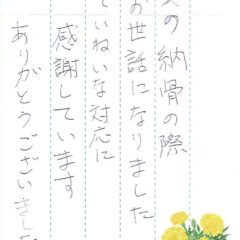 の納骨の際
お世話になりました
ていねいな対応に
感謝しています
ありがとうございました